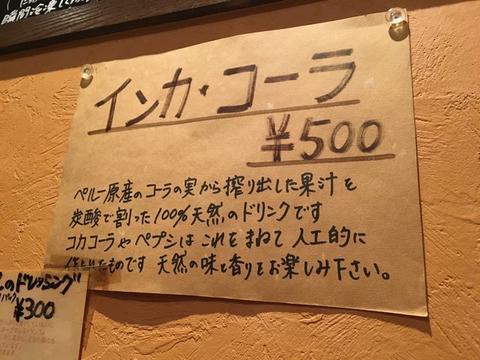 インカ・コーラ
¥500
ペルー原産のコーラの実から搾り出した果汁を
炭酸で割った100%天然のドリンクです
コカコーラやペプシはこれをまねて人工的に
たものです 天然の味と香りをお楽しみ下さい。
のドレッシング
¥300